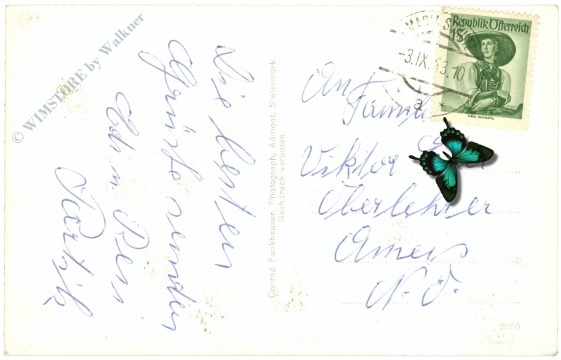 © WIMSTORE by Walkner
Die besten
Grüße senden
Edi u. Resi
Conrad Fankhauser, Photograph, Admont, Steiermark
Nachdruck verboten
Republik Österreich
1S
-3.IX.53.10
a
An
Familie
Viktor
Oberlehrer
Ameis
N.Ö.